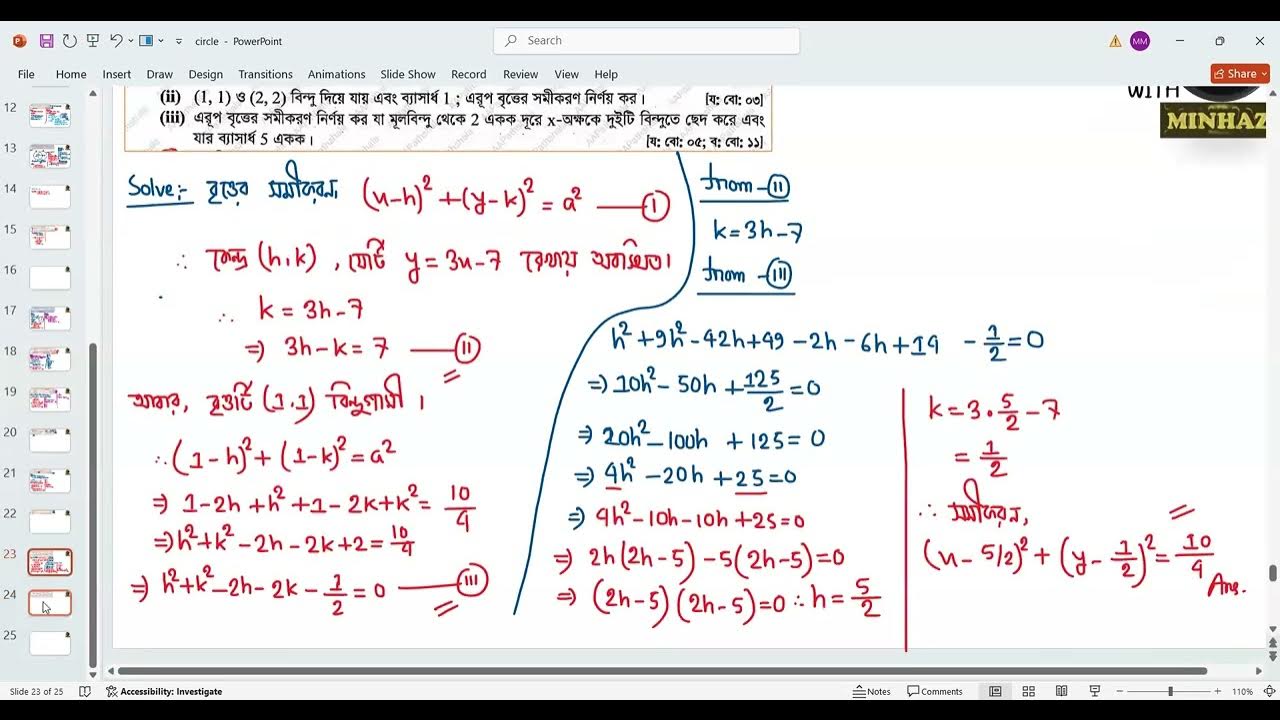 circle - PowerPoint
Search
MM
File Home Insert Draw Design Transitions Animations Slide Show Record Review View Help
Share
12
13
14
15
16
17
18
19
20
21
22
23
24
25
WITH
MINHAZ
(ii) (1, 1) ও (2, 2) বিন্দু দিয়ে যায় এবং ব্যাসার্ধ 1 ; এরূপ বৃত্তের সমীকরণ নির্ণয় কর। [য: বো: ০৩]
(iii) এরূপ বৃত্তের সমীকরণ নির্ণয় কর যা মূলবিন্দু থেকে 2 একক দূরে x-অক্ষকে দুইটি বিন্দুতে ছেদ করে এবং
যার ব্যাসার্ধ 5 একক। [য: বো: ০৫; ব: বো: ১১]
Solve:- বৃত্তের সমীকরন, (x-h)² + (y-k)² = a² —— (I)
∴ কেন্দ্র (h,k), যেটি y = 3x-7 রেখায় অবস্থিত।
∴ k = 3h-7
⇒ 3h-k = 7 —— (II)
আবার, বৃত্তটি (1,1) বিন্দুগামী।
∴ (1-h)² + (1-k)² = a²
⇒ 1-2h+h²+1-2k+k² = 10/4
⇒ h²+k²-2h-2k+2 = 10/4
⇒ h²+k²-2h-2k-1/2 = 0 —— (III)
from - (II)
k = 3h-7
from - (III)
h²+9h²-42h+49-2h-6h+14 -1/2 = 0
⇒ 10h²-50h+125/2 = 0
⇒ 20h²-100h+125 = 0
⇒ 4h²-20h+25 = 0
⇒ 4h²-10h-10h+25 = 0
⇒ 2h(2h-5)-5(2h-5) = 0
⇒ (2h-5)(2h-5) = 0 ∴ h = 5/2
k = 3·5/2-7
= 1/2
∴ সমীকরন,
(x-5/2)² + (y-1/2)² = 10/4
Ans.
Slide 23 of 25 Accessibility: Investigate Notes Comments 110%